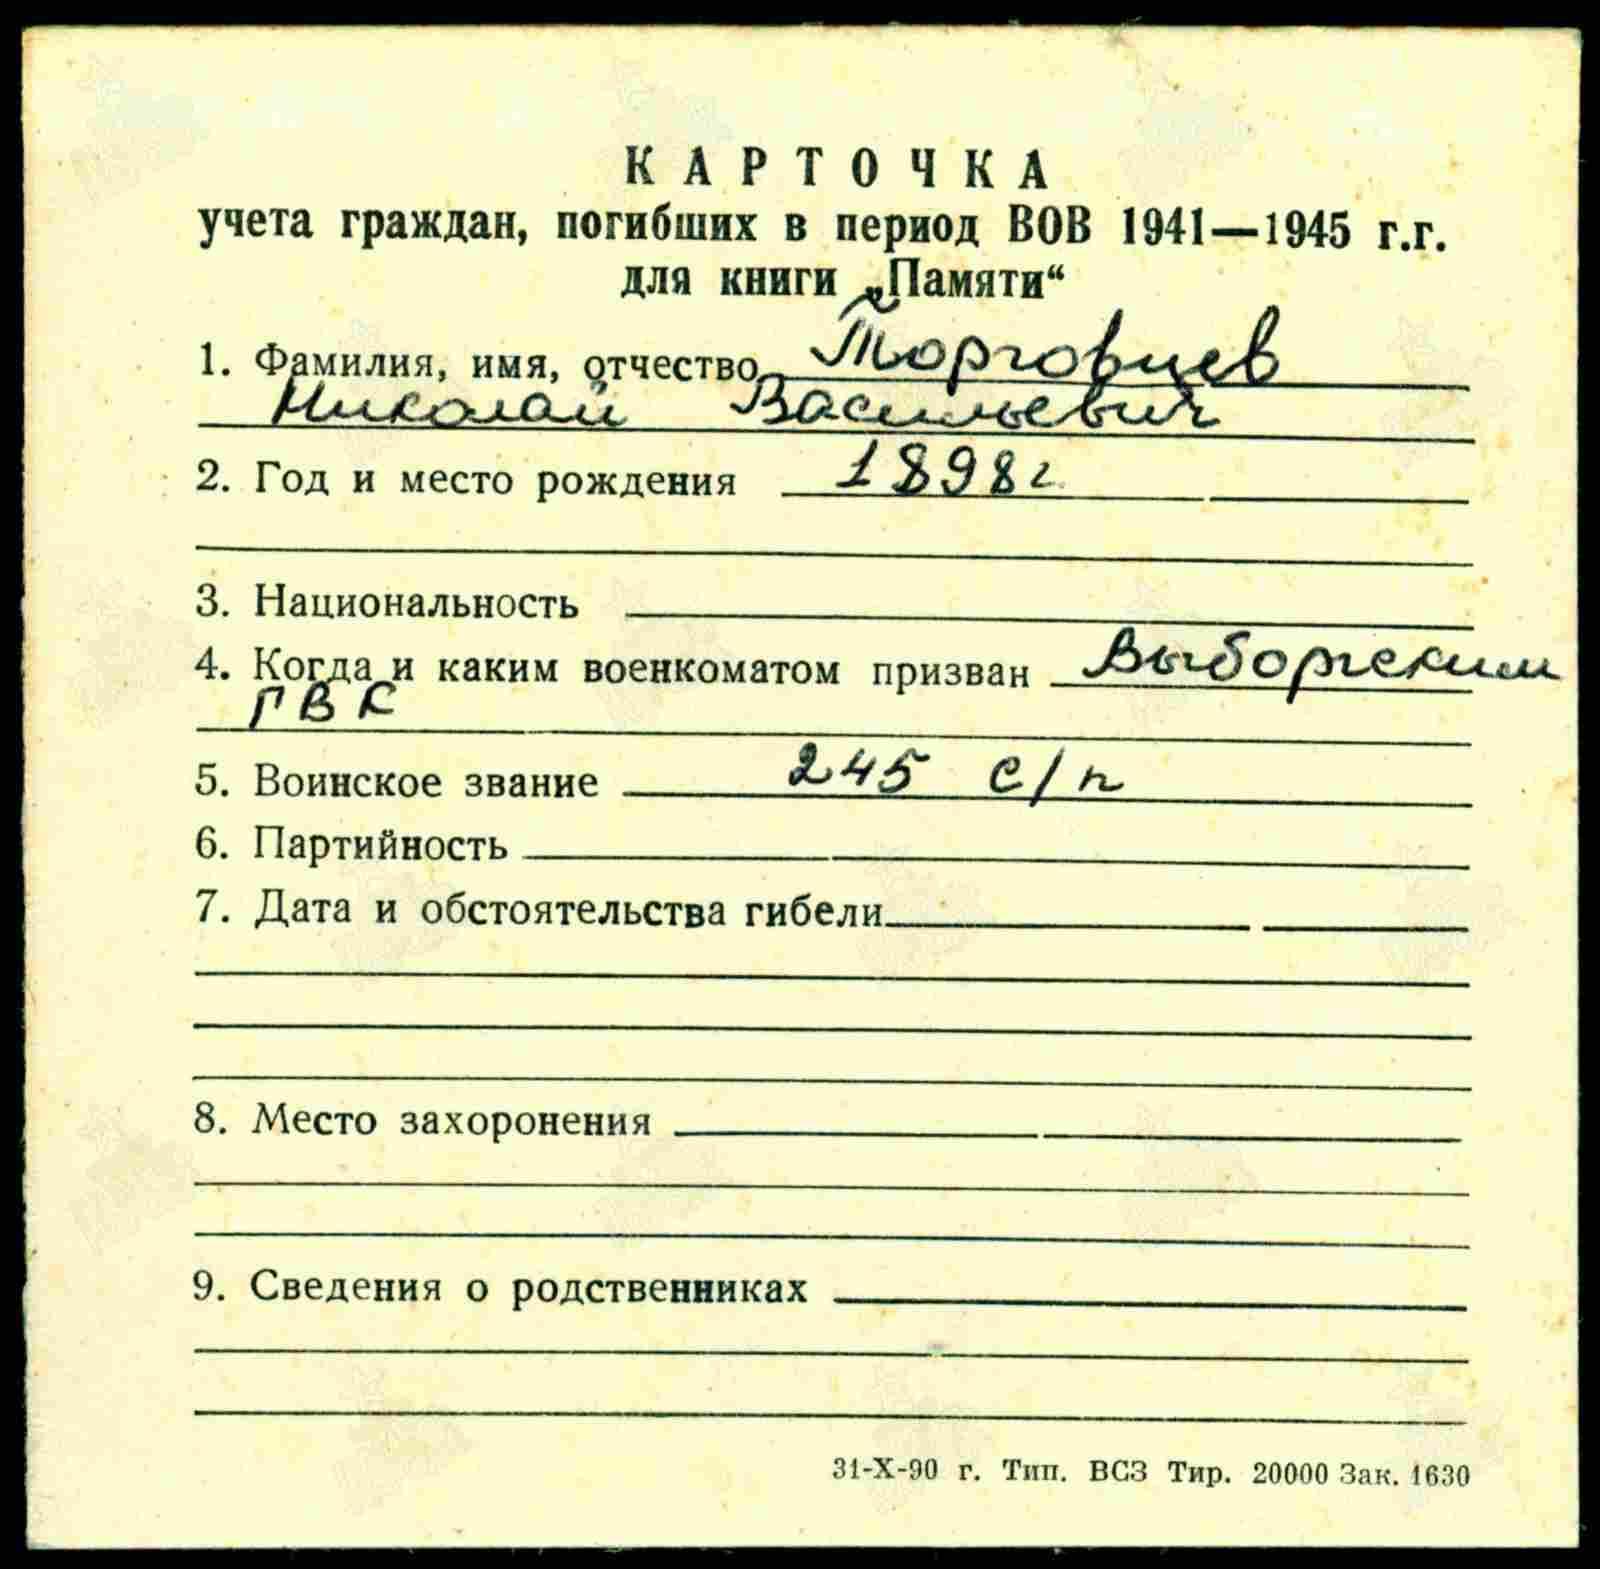 КАРТОЧКА
учета граждан, погибших в период ВОВ 1941—1945 г.г.
для книги „Памяти“
1. Фамилия, имя, отчество Торговцев
Николай Васильевич
2. Год и место рождения 1898г.
3. Национальность
4. Когда и каким военкоматом призван Выборгским
ГВК
5. Воинское звание 245 с/п
6. Партийность
7. Дата и обстоятельства гибели
8. Место захоронения
9. Сведения о родственниках
31-X-90 г. Тип. ВСЗ Тир. 20000 Зак. 1630